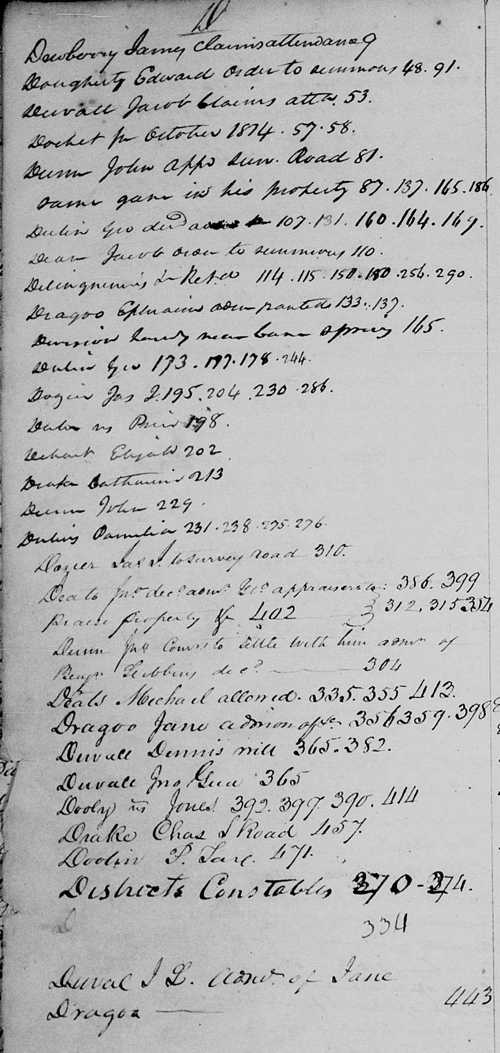 D
Dewberry James Claims attendance 9
Dougherty Edward Order to summons 48. 91.
Duvall Jacob Claims atta. 53.
Docket for October 1814. 57. 58.
Dunn John appd Road 81.
same gane in his property 87. 137. 165. 186
Dulin Geo decd 107. 131. 160. 164. 169.
Dean Jacob order to summons 110.
Delinquents 114. 115. 150. 180. 256. 290.
Dragoo Ephraim adm granted 133. 137.
Division near spring 165.
Dulin Geo 173. 177. 178. 244.
Dozier Jas J. 195. 204. 230. 286.
vs 198.
Dehart Elijah 202
Drake Catharine 213
Dunn John 229.
Dulins Pamilia 231. 238. 275. 276.
Dozier Jas J. to survey road 310.
Deats Jno decd admr. appraisers to: 386. 399
Praise Property &c 402 } 312. 315 354
Dunn Jno Comrs to settle with him admr of
Benjn decd. 304
Deats Michael allowed. 335. 355. 413.
Dragoo Jane 356 359. 398
Duvall Dennis mill 365. 382.
Duvall Jno 365
Dooly vs Jones 392. 397. 390. 414
Drake Chas S Road 457.
Doolin P. 471.
Districts Constables 370 - 374.
D 334
Duval J L. admr. of Jane
Dragoo — 443